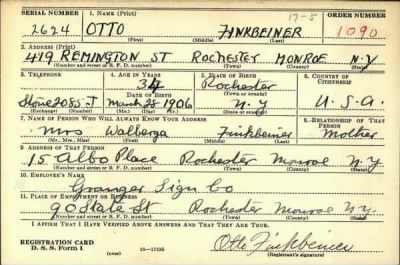 SERIAL NUMBER 1. NAME (Print) ORDER NUMBER
17-5
2624 OTTO FINKBEINER 1090
(First) (Middle) (Last)
2. ADDRESS (Print)
419 REMINGTON ST ROCHESTER MONROE N.Y
(Number and street or R. F. D. number) (Town) (County) (State)
3. TELEPHONE 4. AGE IN YEARS 5. PLACE OF BIRTH 6. COUNTRY OF CITIZENSHIP
34 Rochester
DATE OF BIRTH (Town or county)
Stone 2085-J March 28 1906 N.Y U.S.A.
(Exchange) (Number) (Mo.) (Day) (Yr.) (State or country)
7. NAME OF PERSON WHO WILL ALWAYS KNOW YOUR ADDRESS 8. RELATIONSHIP OF THAT PERSON
Mrs Walberga Finkbeiner Mother
(Mr., Mrs., Miss) (First) (Middle) (Last)
9. ADDRESS OF THAT PERSON
15 Albo Place Rochester Monroe N.Y
(Number and street or R. F. D. number) (Town) (County) (State)
10. EMPLOYER'S NAME
Granger Sign Co
11. PLACE OF EMPLOYMENT OR BUSINESS
90 State St Rochester Monroe N.Y.
(Number and street or R. F. D. number) (Town) (County) (State)
I AFFIRM THAT I HAVE VERIFIED ABOVE ANSWERS AND THAT THEY ARE TRUE.
REGISTRATION CARD
D. S. S. Form 1 (over) Otto Finkbeiner
(Registrant's signature)